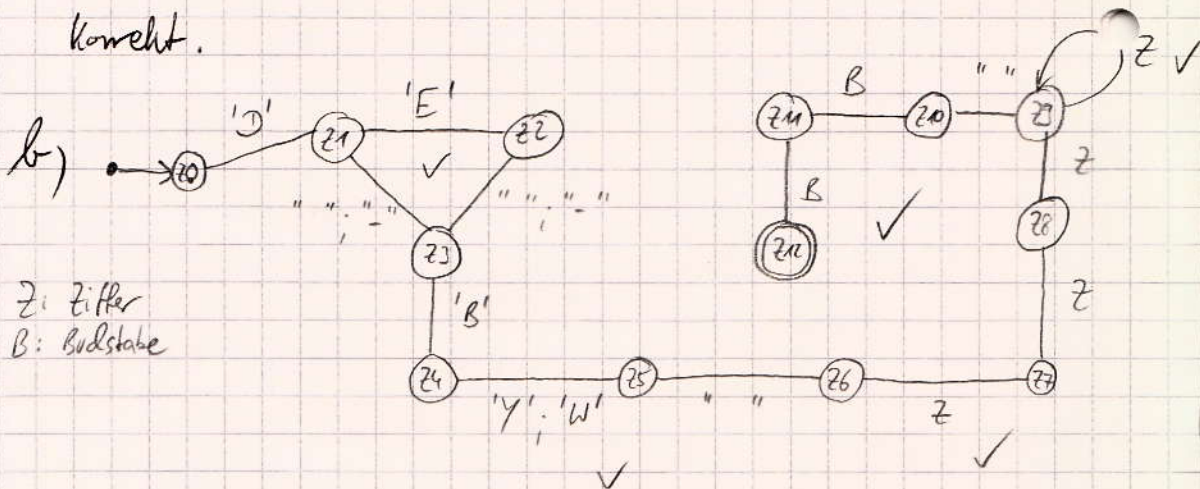 Korrekt.
b)
Z0
'D'
Z1
'E'
Z2
" " ; "-"
" " ; "-"
Z3
'B'
Z4
'Y' ; 'W'
Z5
" "
Z6
Z
Z7
Z
Z8
Z
Z9
Z
" "
Z10
B
Z11
B
Z12
Z: Ziffer
B: Buchstabe